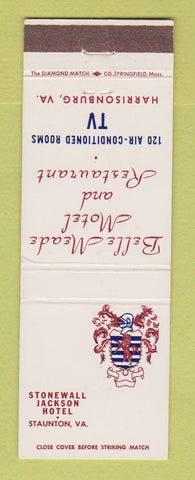 The DIAMOND MATCH. CO. SPRINGFIELD, Mass.
HARRISONBURG, VA.
TV
120 AIR-CONDITIONED ROOMS
Restaurant
and
Motel
Belle Meade
STONEWALL
JACKSON
HOTEL
STAUNTON, VA.
CLOSE COVER BEFORE STRIKING MATCH